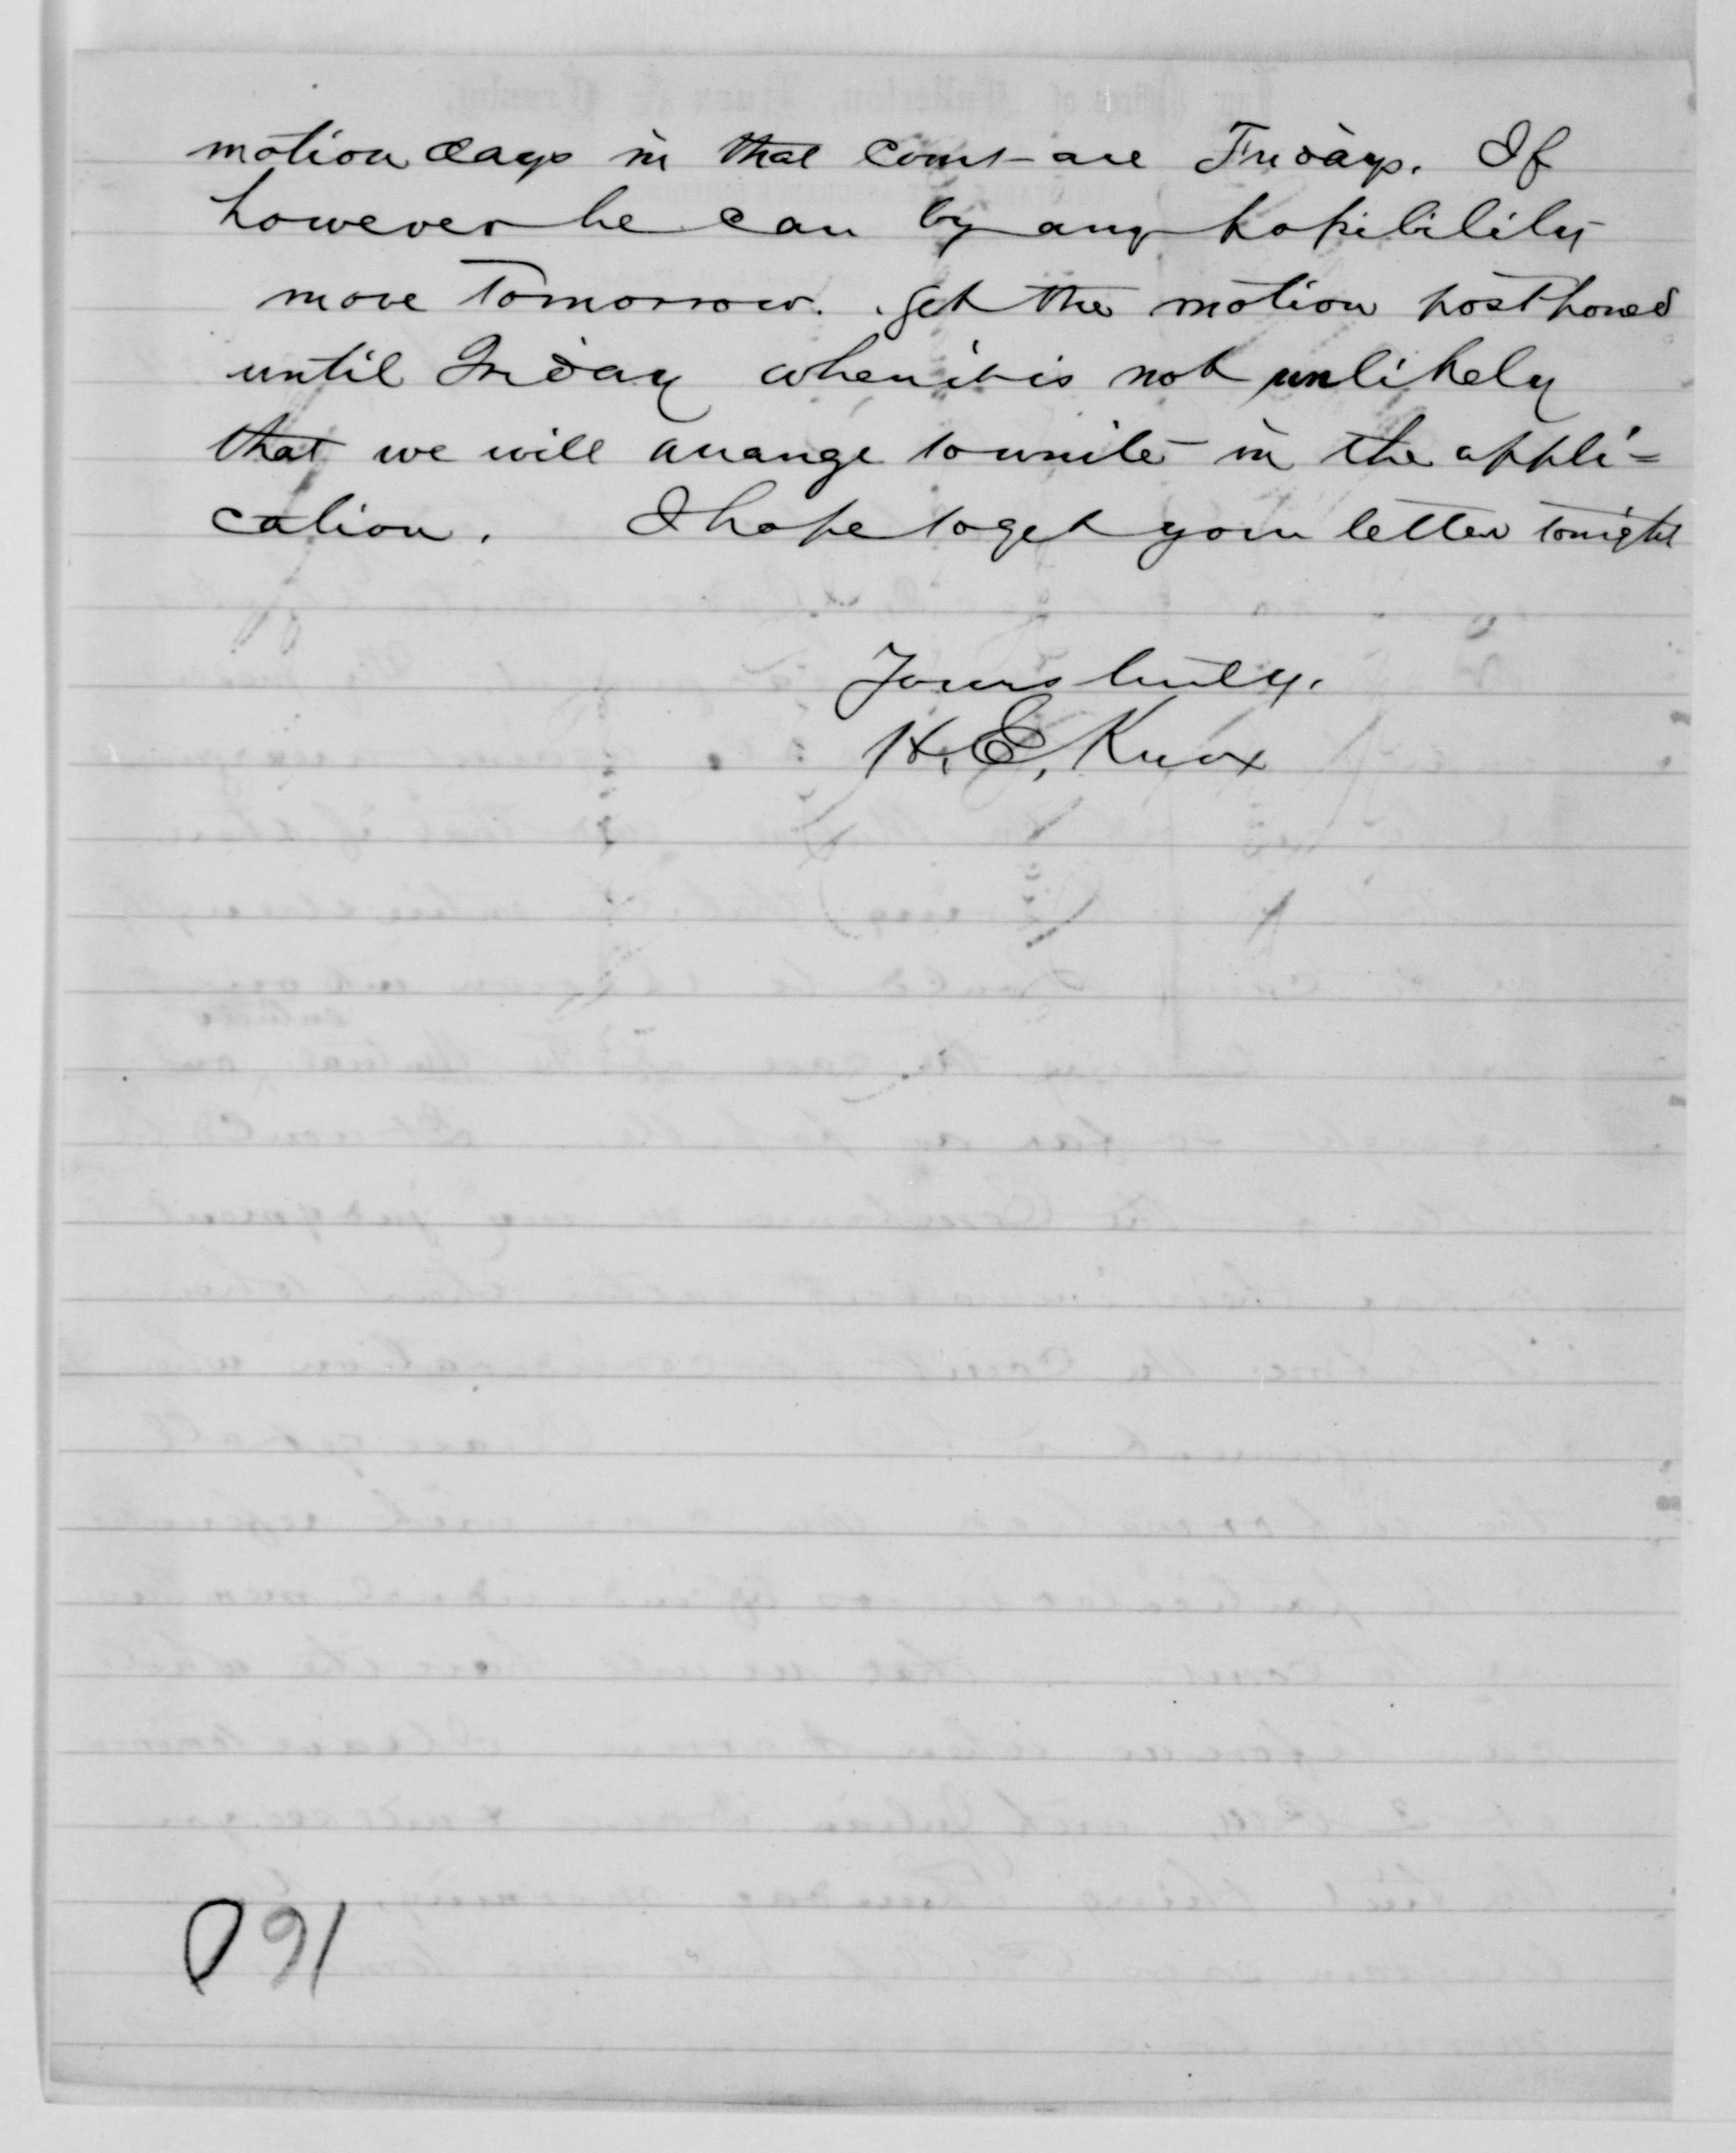 motion days in that court are Fridays. If
however he can by any possibility
move tomorrow. get the motion postponed
until Friday when it is not unlikely
that we will arrange to unite in the appli=
cation. I hope to get your letter tonight
Yours truly.
H. E. Knox
160